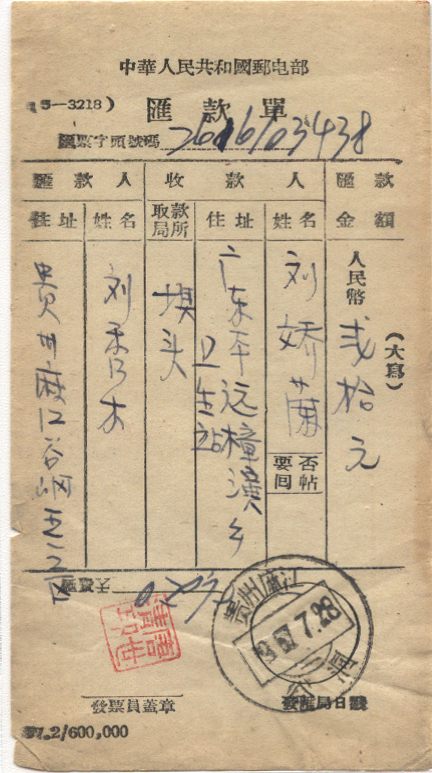 中華人民共和國郵电部
(5—3218)
匯款單
匯票字頭號碼 2616/03438
匯款人 收款人 匯款
住址 姓名 取款局所 住址 姓名 金額
人民幣 貳拾元
(大寫)
刘娇蘭
要否回帖
广东平远樟演乡
卫生站
坝头
刘香木
贵州麻江谷硐王立区
匯費 0.20
贵州麻江
57.7.28
谷硐
發票員蓋章
發匯局日戳
57.2/600,000